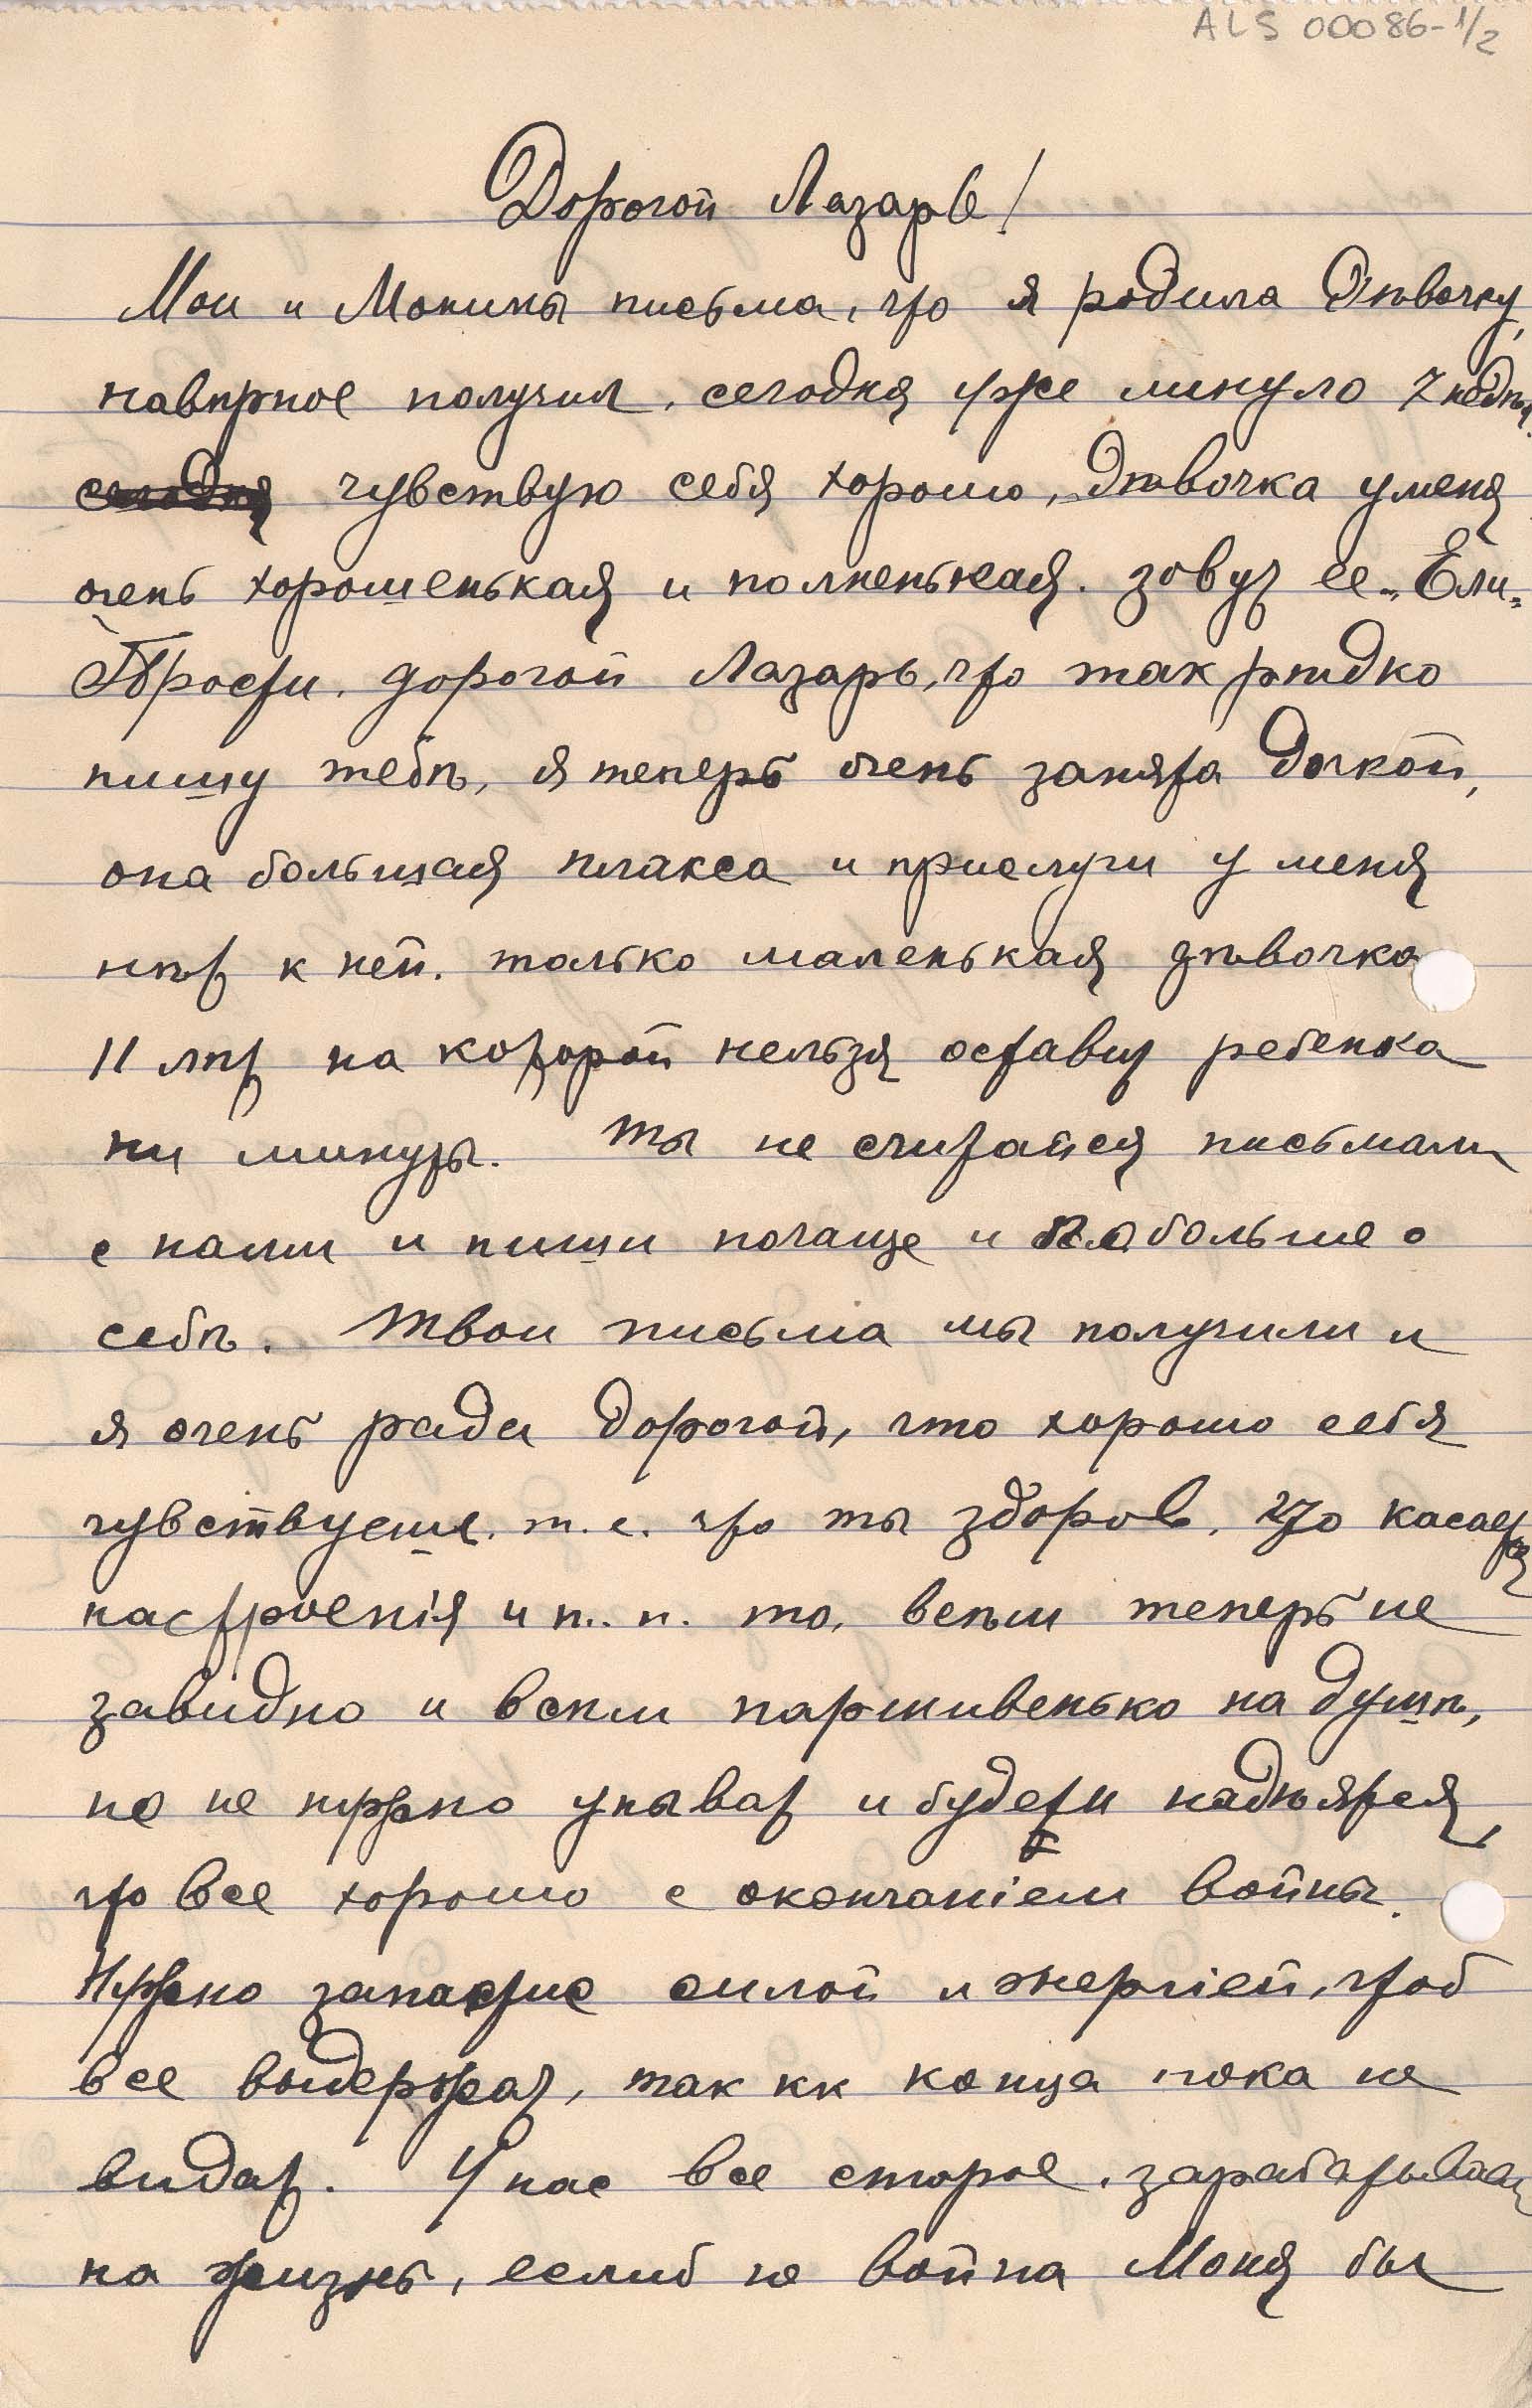 ALS 00086-1/2
Дорогой Лазарь!
Мои и Монины письма, что я родила дѣвочку,
навѣрное получил. сегодня уже минуло 7 недѣл.
сегодня чувствую себя хорошо, дѣвочка у меня
очень хорошенькая и полненькая. зовут ее „Ели„
Прости, дорогой Лазарь, что так рѣдко
пишу тебѣ, я теперь очень занята дочкой,
она большая плакса и прислуги у меня
нѣт к ней. только маленькая дѣвочка
11 лѣт на которой нельзя оставит ребенка
ни минуты. Ты не считайся письмами
с нами и пиши почаще и побольше о
себѣ. Твои письма мы получили и
я очень рада дорогой, что хорошо себя
чувствуешь. т. е. что ты здоров. Что касается
настроенія и т. п. то, всѣм теперь не
завидно и всѣм паршивенько на душѣ,
но не нужно уныват и будем надѣятся,
что все хорошо с окончаніем войны.
Нужно запастис силой и энергіей, чтоб
все выдержат, так кк конца пока не
видат. У нас все старое. зарабатываем
на жизнь, еслиб не война Моня бы